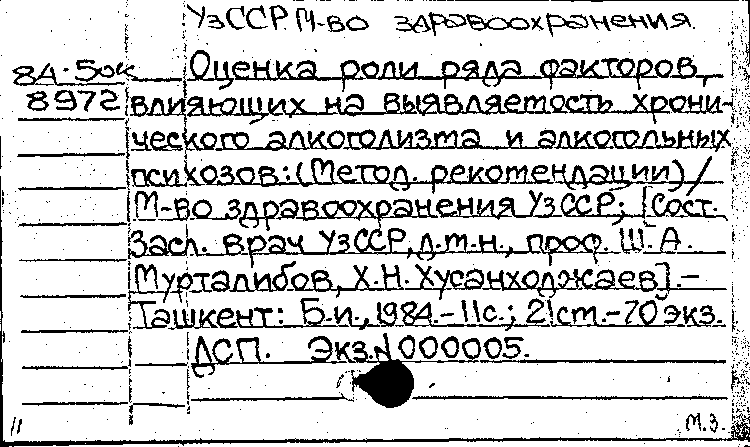 УзССР. М-во здравоохранения.
84-50к Оценка роли ряда факторов,
8972 влияющих на выявляемость хрони-
ческого алкоголизма и алкогольных
психозов: (Метод. рекомендации) /
М-во здравоохранения УзССР; [Сост.
Засл. врач УзССР, д.м.н., проф. Ш. А.
Мурталибов, Х.Н. Хусанходжаев]. -
Ташкент: Б.и., 1984. - 11с.; 21см. - 70 экз.
ДСП. Экз. N 000005.
11 М.З.